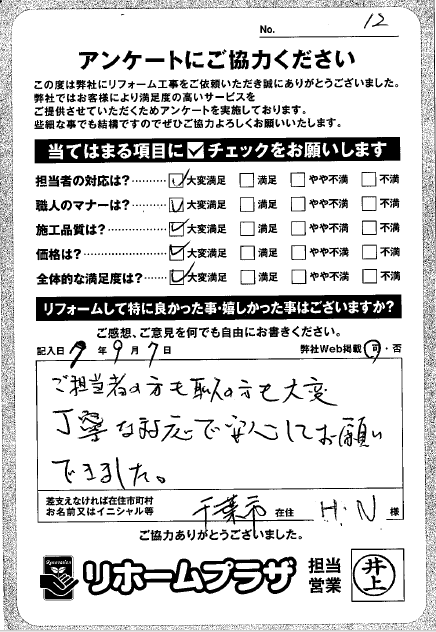 No. 12
アンケートにご協力ください
この度は弊社にリフォーム工事をご依頼いただき誠にありがとうございました。
弊社ではお客様により満足度の高いサービスを
ご提供させていただくためアンケートを実施しております。
些細な事でも結構ですのでぜひご協力よろしくお願いいたします。
当てはまる項目に☑チェックをお願いします
担当者の対応は?‥‥‥‥ ☑大変満足 □満足 □やや不満 □不満
職人のマナーは?‥‥‥‥ ☑大変満足 □満足 □やや不満 □不満
施工品質は?‥‥‥‥‥‥ ☑大変満足 □満足 □やや不満 □不満
価格は?‥‥‥‥‥‥‥‥ ☑大変満足 □満足 □やや不満 □不満
全体的な満足度は?‥‥‥ ☑大変満足 □満足 □やや不満 □不満
リフォームして特に良かった事・嬉しかった事はございますか?
ご感想、ご意見を何でも自由にお書きください。
記入日 7年9月7日 弊社Web掲載 可・否
ご担当者の方も職人の方も大変
丁寧な対応で安心してお願い
できました。
差支えなければ在住市町村
お名前又はイニシャル等 千葉市 在住 H.N 様
ご協力ありがとうございました。
Renovation リホームプラザ 担当
営業 井上